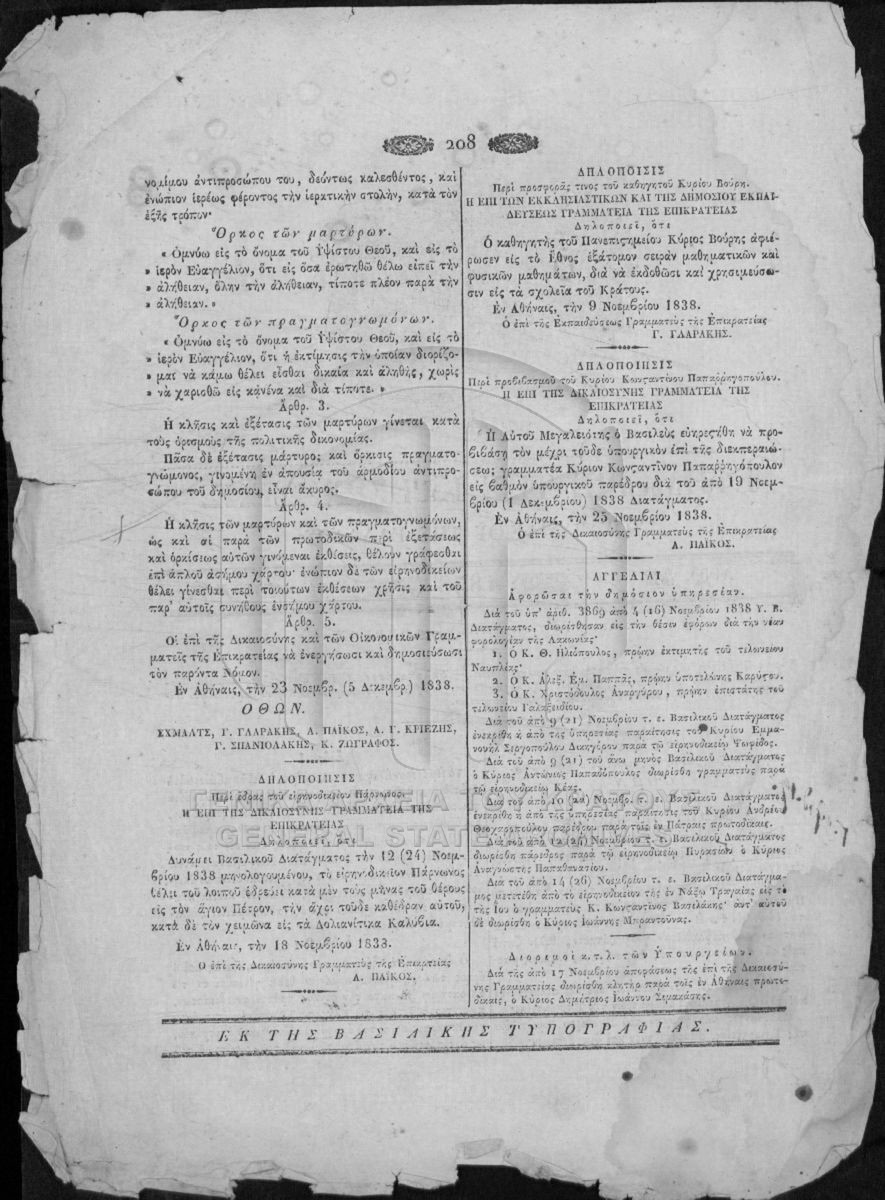 208
νομίμου ἀντιπροσώπου του, δεόντως καλεσθέντος, καὶ
ἐνώπιον ἱερέως φέροντος τὴν ἱερατικὴν στολὴν, κατὰ τὸν
ἑξῆς τρόπον·
Ὅρκος τῶν μαρτύρων.
« Ὀμνύω εἰς τὸ ὄνομα τοῦ Ὑψίστου Θεοῦ, καὶ εἰς τὸ
» ἱερὸν Εὐαγγέλιον, ὅτι εἰς ὅσα ἐρωτηθῶ θέλω εἰπεῖ τὴν
» ἀλήθειαν, ὅλην τὴν ἀλήθειαν, τίποτε πλέον παρὰ τὴν
» ἀλήθειαν.»
Ὅρκος τῶν πραγματογνωμόνων.
« Ὀμνύω εἰς τὸ ὄνομα τοῦ Ὑψίστου Θεοῦ, καὶ εἰς τὸ
» ἱερὸν Εὐαγγέλιον, ὅτι ἡ ἐκτίμησις τὴν ὁποίαν διορίζο-
» μαι νὰ κάμω θέλει εἶσθαι δικαία καὶ ἀληθὴς, χωρὶς
» νὰ χαρισθῶ εἰς κᾀνένα καὶ διὰ τίποτε. »
Ἄρθρ. 3.
Ἡ κλῆσις καὶ ἐξέτασις τῶν μαρτύρων γίνεται κατὰ
τοὺς ὁρισμοὺς τῆς πολιτικῆς δικονομίας.
Πᾶσα δὲ ἐξέτασις μάρτυρος καὶ ὅρκισις πραγματο-
γνώμονος, γινομένη ἐν ἀπουσίᾳ τοῦ ἁρμοδίου ἀντιπρο-
σώπου τοῦ δημοσίου, εἶναι ἄκυρος.
Ἄρθρ. 4.
Ἡ κλῆσις τῶν μαρτύρων καὶ τῶν πραγματογνωμόνων,
ὡς καὶ αἱ παρὰ τῶν πρωτοδικῶν περὶ ἐξετάσεως
καὶ ὁρκίσεως αὐτῶν γινόμεναι ἐκθέσεις, θέλουν γράφεσθαι
ἐπὶ ἁπλοῦ ἀσήμου χάρτου· ἐνώπιον δὲ τῶν εἰρηνοδικείων
θέλει γίνεσθαι περὶ τοιούτων ἐκθέσεων χρῆσις καὶ τοῦ
παρ' αὐτοῖς συνήθους ἐνσήμου χάρτου.
Ἄρθρ. 5.
Οἱ ἐπὶ τῆς Δικαιοσύνης καὶ τῶν Οἰκονομικῶν Γραμ-
ματεῖς τῆς Ἐπικρατείας νὰ ἐνεργήσωσι καὶ δημοσιεύσωσι
τὸν παρόντα Νόμον.
Ἐν Ἀθήναις, τὴν 23 Νοεμβρ. (5 Δεκεμβρ.) 1838.
ΟΘΩΝ.
ΣΧΜΑΛΤΣ, Γ. ΓΛΑΡΑΚΗΣ, Α. ΠΑΪΚΟΣ, Α. Γ. ΚΡΙΕΖΗΣ,
Γ. ΣΠΑΝΙΟΛΑΚΗΣ, Κ. ΖΩΓΡΑΦΟΣ.
ΔΗΛΟΠΟΙΗΣΙΣ
Περὶ ἕδρας τοῦ εἰρηνοδικείου Πάρνωνος.
Η ΕΠΙ ΤΗΣ ΔΙΚΑΙΟΣΥΝΗΣ ΓΡΑΜΜΑΤΕΙΑ ΤΗΣ
ΕΠΙΚΡΑΤΕΙΑΣ
Δηλοποιεῖ, ὅτι
Δυνάμει Βασιλικοῦ Διατάγματος τὴν 12 (24) Νοεμ-
βρίου 1838 μηνολογουμένου, τὸ εἰρηνοδικεῖον Πάρνωνος
θέλει τοῦ λοιποῦ ἑδρεύει κατὰ μὲν τοὺς μῆνας τοῦ θέρους
εἰς τὸν ἅγιον Πέτρον, τὴν ἄχρι τοῦδε καθέδραν αὐτοῦ,
κατὰ δὲ τὸν χειμῶνα εἰς τὰ Δολιανίτικα Καλύβια.
Ἐν Ἀθήναις, τὴν 18 Νοεμβρίου 1838.
Ὁ ἐπὶ τῆς Δικαιοσύνης Γραμματεὺς τῆς Ἐπικρατείας
Α. ΠΑΪΚΟΣ.
ΔΗΛΟΠΟΙΣΙΣ
Περὶ προσφορᾶς τινος τοῦ καθηγητοῦ Κυρίου Βούρη.
Η ΕΠΙ ΤΩΝ ΕΚΚΛΗΣΙΑΣΤΙΚΩΝ ΚΑΙ ΤΗΣ ΔΗΜΟΣΙΟΥ ΕΚΠΑΙ-
ΔΕΥΣΕΩΣ ΓΡΑΜΜΑΤΕΙΑ ΤΗΣ ΕΠΙΚΡΑΤΕΙΑΣ
Δηλοποιεῖ, ὅτι
Ὁ καθηγητὴς τοῦ Πανεπιστημείου Κύριος Βούρης ἀφιέ-
ρωσεν εἰς τὸ Ἔθνος ἑξάτομον σειρὰν μαθηματικῶν καὶ
φυσικῶν μαθημάτων, διὰ νὰ ἐκδοθῶσι καὶ χρησιμεύσω-
σιν εἰς τὰ σχολεῖα τοῦ Κράτους.
Ἐν Ἀθήναις, τὴν 9 Νοεμβρίου 1838.
Ὁ ἐπὶ τῆς Ἐκπαιδεύσεως Γραμματεὺς τῆς Ἐπικρατείας
Γ. ΓΛΑΡΑΚΗΣ.
ΔΗΛΟΠΟΙΗΣΙΣ
Περὶ προβιβασμοῦ τοῦ Κυρίου Κωνσταντίνου Παπαρρηγοπούλου.
Η ΕΠΙ ΤΗΣ ΔΙΚΑΙΟΣΥΝΗΣ ΓΡΑΜΜΑΤΕΙΑ ΤΗΣ
ΕΠΙΚΡΑΤΕΙΑΣ
Δηλοποιεῖ, ὅτι
Ἡ Αὐτοῦ Μεγαλειότης ὁ Βασιλεὺς εὐηρεστήθη νὰ προ-
βιβάσῃ τὸν μέχρι τοῦδε ὑπουργικὸν ἐπὶ τῆς διεκπεραιώ-
σεως γραμματέα Κύριον Κωνσταντῖνον Παπαρρηγόπουλον
εἰς βαθμὸν ὑπουργικοῦ παρέδρου διὰ τοῦ ἀπὸ 19 Νοεμ-
βρίου (1 Δεκεμβρίου) 1838 Διατάγματος.
Ἐν Ἀθήναις, τὴν 25 Νοεμβρίου 1838.
Ὁ ἐπὶ τῆς Δικαιοσύνης Γραμματεὺς τῆς Ἐπικρατείας
Α. ΠΑΪΚΟΣ.
ΑΓΓΕΛΙΑΙ
Ἀφορῶσαι τὴν δημόσιον ὑπηρεσίαν.
Διὰ τοῦ ὑπ' ἀριθ. 3869 ἀπὸ 4 (16) Νοεμβρίου 1838 Υ. Β.
Διατάγματος, διωρίσθησαν εἰς τὴν θέσιν ἐφόρων διὰ τὴν νέαν
φορολογίαν τῆς Λακωνίας·
1. Ὁ Κ. Θ. Ηλιόπουλος, πρώην ἐκτιμητὴς τοῦ τελωνείου
Ναυπλίας·
2. Ὁ Κ. Ἀλεξ. Ἐμ. Παππᾶς, πρώην ὑποτελώνης Καρύστου.
3. Ὁ Κ. Χριστόδουλος Ἀναργύρου, πρώην ἐπιστάτης τοῦ
τελωνείου Γαλαξειδίου.
Διὰ τοῦ ἀπὸ 9 (21) Νοεμβρίου τ. ἔ. Βασιλικοῦ Διατάγματος
ἐνεκρίθη ἡ ἀπὸ τῆς ὑπηρεσίας παραίτησις τοῦ Κυρίου Ἐμμα-
νουὴλ Σεργοπούλου Δικηγόρου παρὰ τῷ εἰρηνοδικείῳ Ψωφίδος.
Διὰ τοῦ ἀπὸ 9 (21) τοῦ ἄνω μηνὸς Βασιλικοῦ Διατάγματος
ὁ Κύριος Ἀντώνιος Παπαδόπουλος διωρίσθη γραμματεὺς παρὰ
τῷ εἰρηνοδικείῳ Κέας.
Διὰ τοῦ ἀπὸ 10 (22) Νοεμβρ. τ. ἔ. Βασιλικοῦ Διατάγματος
ἐνεκρίθη ἡ ἀπὸ τῆς ὑπηρεσίας παραίτησις τοῦ Κυρίου Ἀνδρέου
Θεοχαροπούλου παρέδρου παρὰ τοῖς ἐν Πάτραις πρωτοδίκαις.
Διὰ τοῦ ἀπὸ 12 (24) Νοεμβρίου τ. ἔ. Βασιλικοῦ Διατάγματος
διωρίσθη πάρεδρος παρὰ τῷ εἰρηνοδικείῳ Πυρασίων ὁ Κύριος
Ἀναγνώστης Παπαθανασίου.
Διὰ τοῦ ἀπὸ 14 (26) Νοεμβρίου τ. ἔ. Βασιλικοῦ Διατάγμα-
τος μετετέθη ἀπὸ τὸ εἰρηνοδικεῖον τῆς ἐν Νάξῳ Τραγαίας εἰς τὸ
τῆς Ἴου ὁ γραμματεὺς Κ. Κωνσταντῖνος Βασιλάκης· ἀντ' αὐτοῦ
δὲ διωρίσθη ὁ Κύριος Ἰωάννης Μπραντούνας.
Διορισμοὶ κ.τ.λ. τῶν Ὑπουργείων.
Διὰ τῆς ἀπὸ 17 Νοεμβρίου ἀποφάσεως τῆς ἐπὶ τῆς Δικαιοσύ-
νης Γραμματείας διωρίσθη κλητὴρ παρὰ τοῖς ἐν Ἀθήναις πρωτο-
δίκαις, ὁ Κύριος Δημήτριος Ἰωάννου Σιμακάσης.
ΕΚ ΤΗΣ ΒΑΣΙΛΙΚΗΣ ΤΥΠΟΓΡΑΦΙΑΣ.